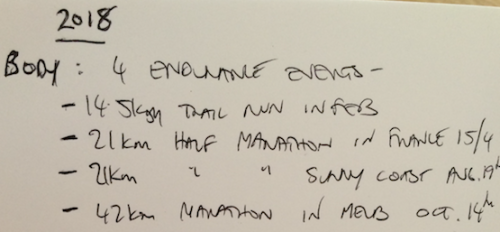 2018
BODY: 4 ENDURANCE EVENTS -
- 14.5km TRAIL RUN IN FEB
- 21km HALF MARATHON IN FRANCE 15/4
- 21km " " SUNNY COAST AUG. 19th
- 42km MARATHON IN MELB OCT. 14th